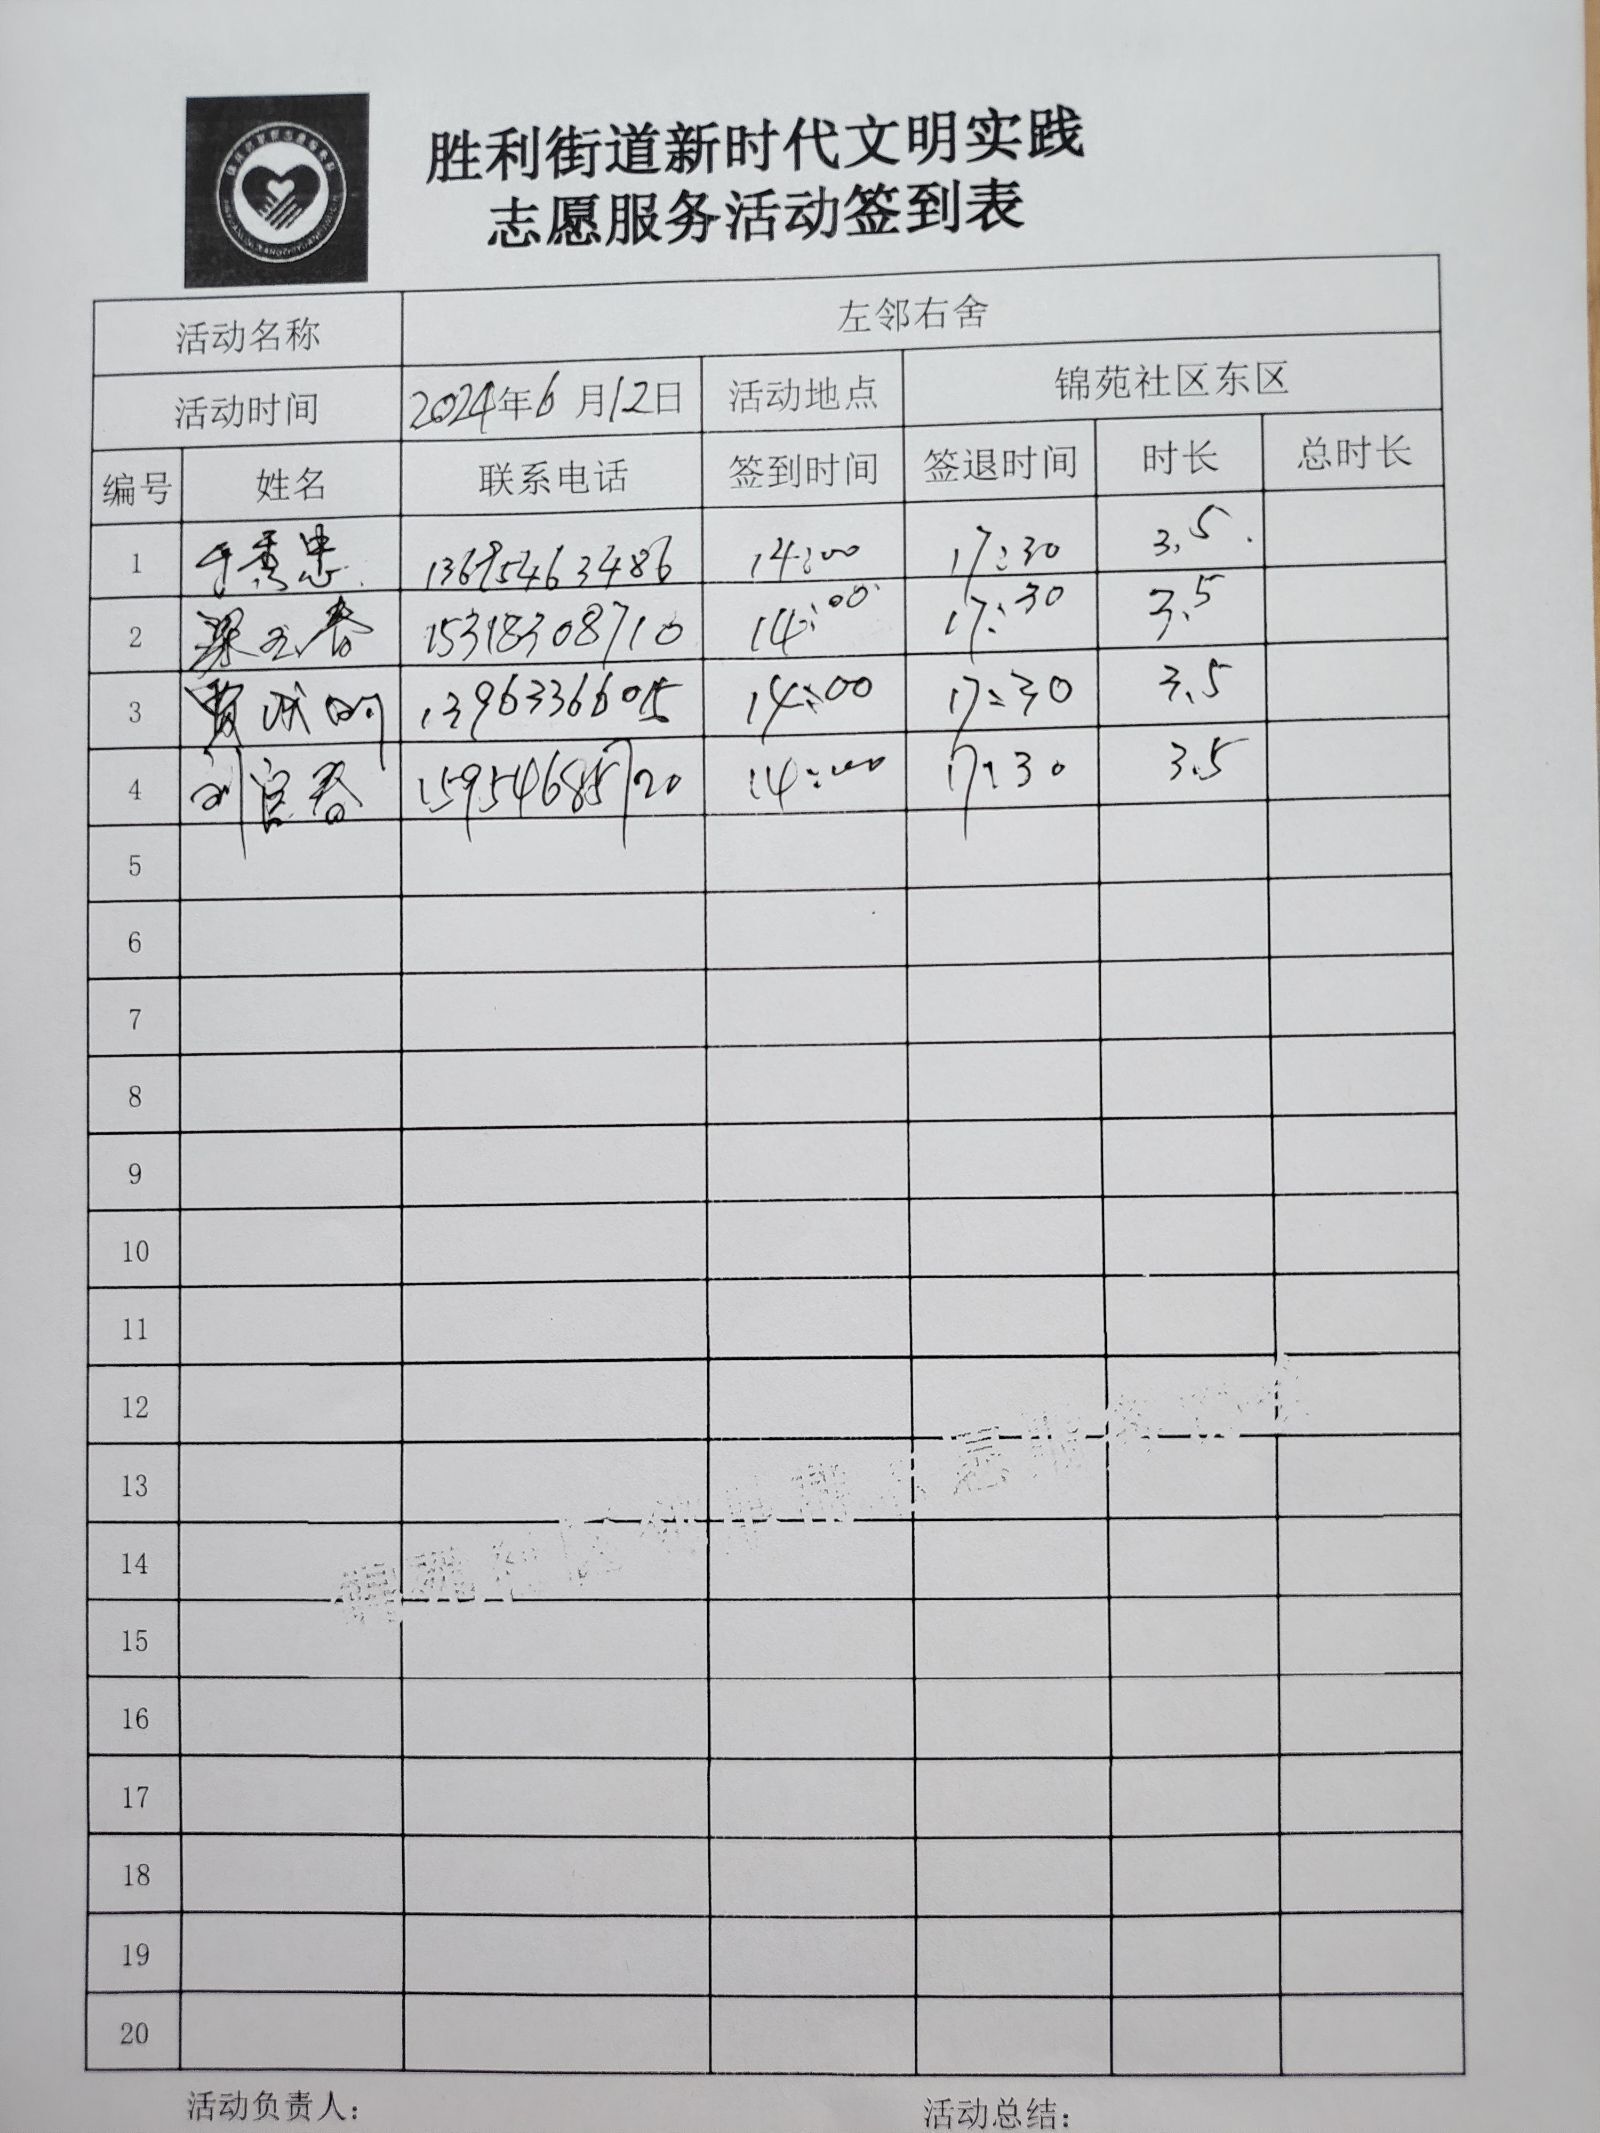 胜利街道新时代文明实践
志愿服务活动签到表
活动名称 左邻右舍
活动时间 2024年6月12日 活动地点 锦苑社区东区
编号 姓名 联系电话 签到时间 签退时间 时长 总时长
1 于秀忠 13695463486 14:00 17:30 3.5
2 梁玉春 15318308710 14:00 17:30 3.5
3 贾成明 13963366015 14:00 17:30 3.5
4 刘宫春 15954685720 14:00 17:30 3.5
5
6
7
8
9
10
11
12
13
14
15
16
17
18
19
20
活动负责人： 活动总结：